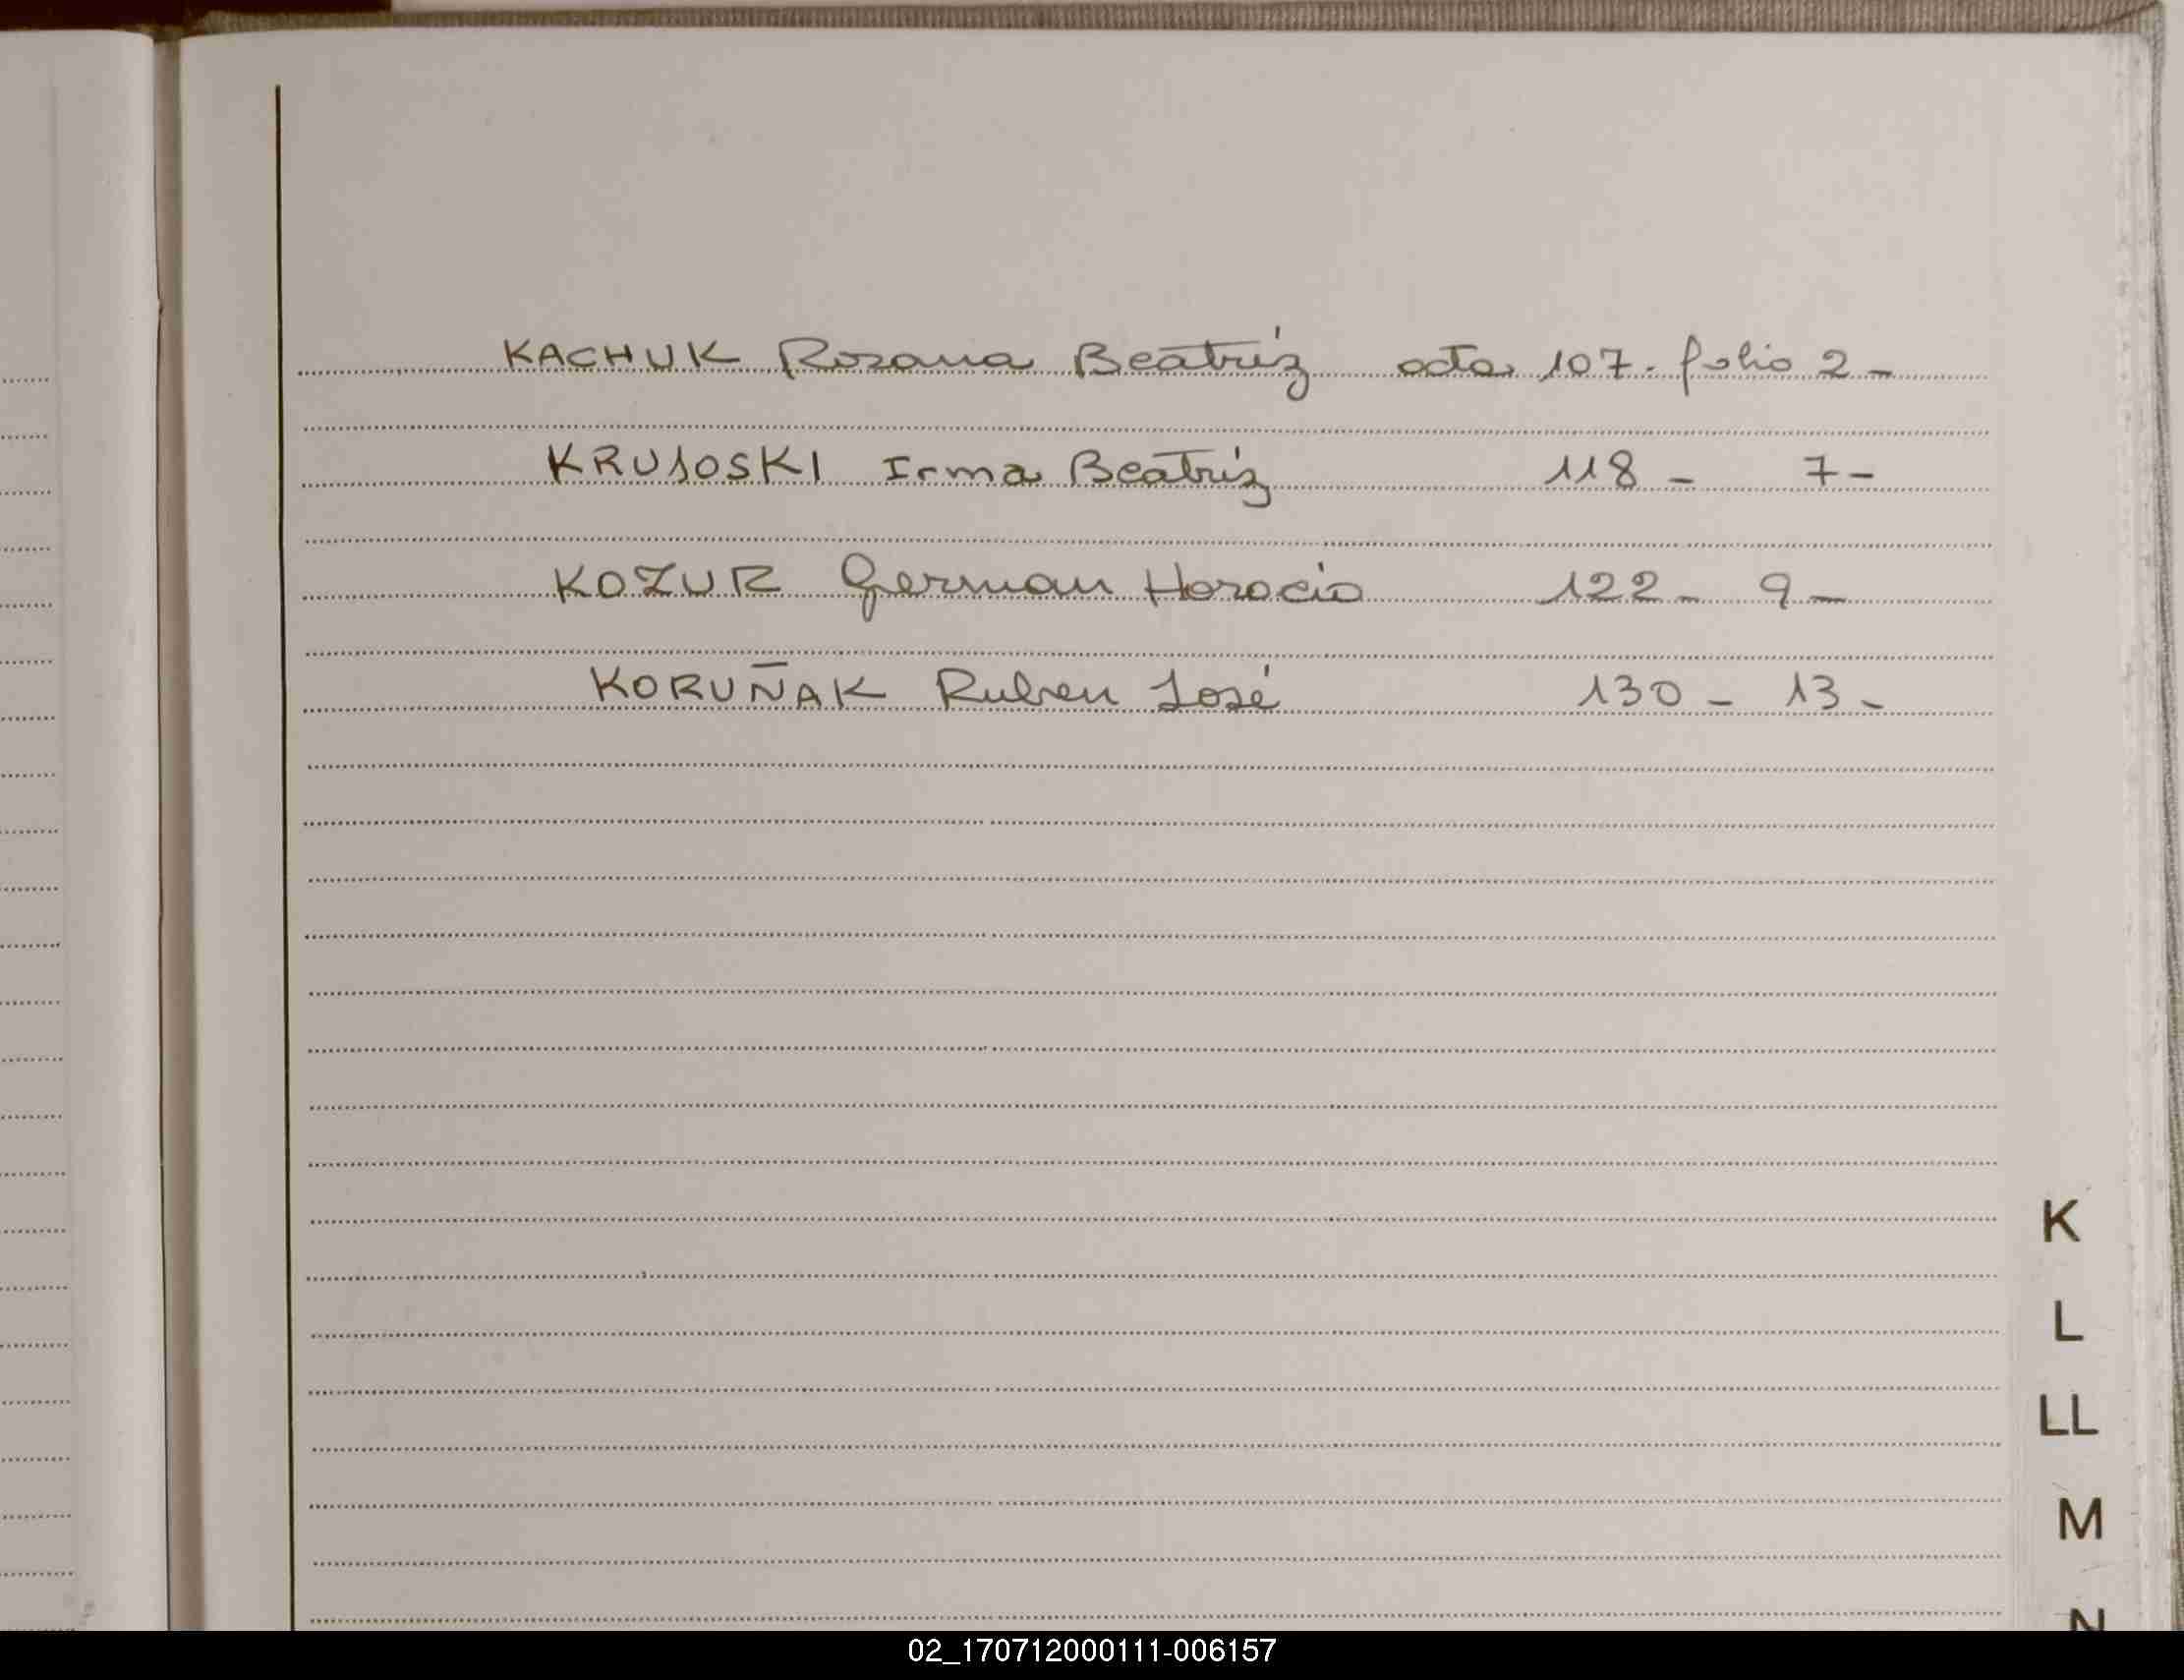 KACHUK Rosana Beatríz acta 107. folio 2 -
KRUJOSKI Irma Beatríz 118 - 7 -
KOZUR German Horacio 122 - 9 -
KORUÑAK Ruben José 130 - 13 -
K
L
LL
M
N
02_170712000111-006157